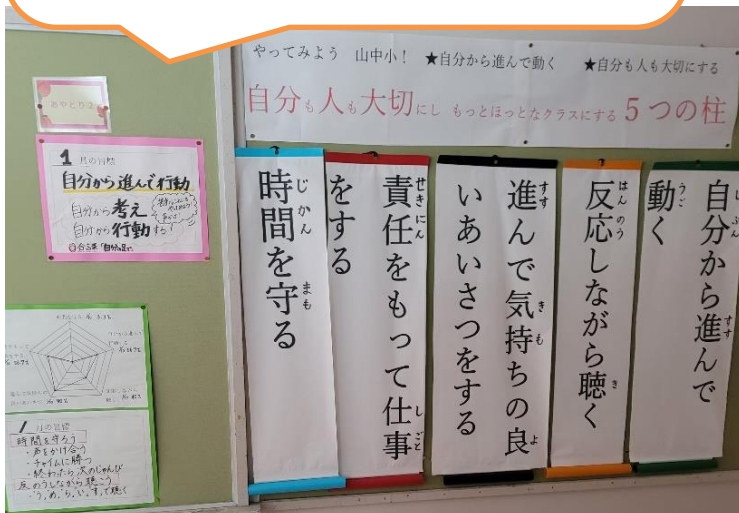 やってみよう 山中小! ★自分から進んで動く ★自分も人も大切にする
自分も人も大切にし もっとほっとなクラスにする 5つの柱
自分から進んで
動く
反応しながら聴く
進んで気持ちの良
いあいさつをする
責任をもって仕事
をする
時間を守る
あやとり
1月の目標
自分から進んで行動
自分から考え
自分から行動する!
合言葉「自分から」
1月の目標
時間を守ろう
・声をかけ合う
・チャイムに勝つ
・終わったら次のじゅんび
反のうしながら聴こう
・う,め,ら,い,す,で聴く